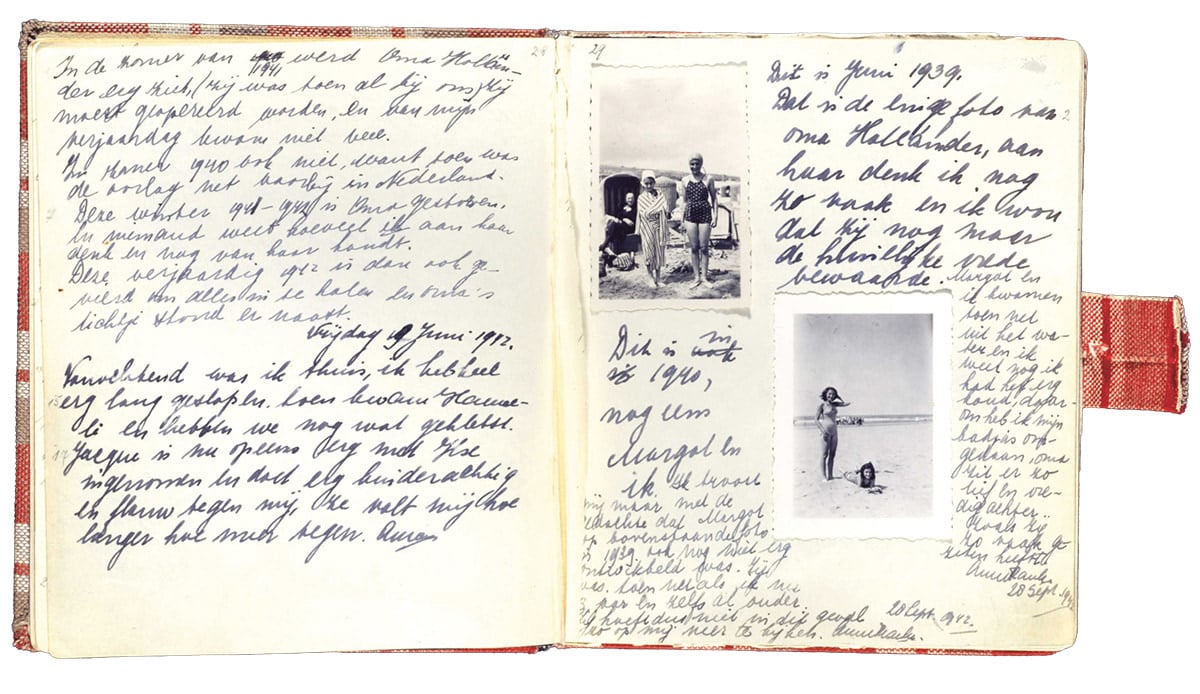 28
In de zomer van 1941 werd Oma Hollän-
der erg ziek, (zij was toen al bij ons) zij
moest geopereerd worden, en van mijn
verjaardag kwam niet veel.
In zomer 1940 ook niet, want toen was
de oorlog net voorbij in Nederland.
Deze winter 1941-1942 is Oma gestorven.
En niemand weet hoeveel ik aan haar
denk en nog van haar houdt.
Deze verjaardag 1942 is dan ook ge-
vierd om alles in te halen en oma's
lichtje stond er naast.
Vrijdag 19 Juni 1942.
Vanochtend was ik thuis, ik heb heel
erg lang geslapen, toen kwam Hanne-
li en hebben we nog wat gekletst.
Jacque is nu opeens erg met Ilse
ingenomen en doet erg kinderachtig
en flauw tegen mij, ze valt mij hoe
langer hoe meer tegen.
29
Dit is Juni 1939.
Dat is de enige foto van
oma Holländer, aan
haar denk ik nog
zo vaak en ik wou
dat zij nog maar
de huiselijke vrede
bewaarde.
Margot en
ik kwamen
toen net
uit het wa-
ter en ik
weet nog ik
had het erg
koud, daar-
om heb ik mijn
badjas om-
gedaan, oma
zit er zo
lief en vre-
dig achter.
Zoals zij
zo vaak ge
zeten heeft
Anne Frank.
28 Sept. 1942
Dit is in
1940,
nog eens
Margot en
ik. Ik troost
mij maar met de
gedachte dat Margot
op bovenstaande foto
in 1939 ook nog niet erg
ontwikkeld was. Zij
was toen net als ik nu
13 jaar en zelfs al ouder.
hoeft dus niet in dit geval
zo op mij neer te kijken. Anne Frank.
28 Sept. 1942.